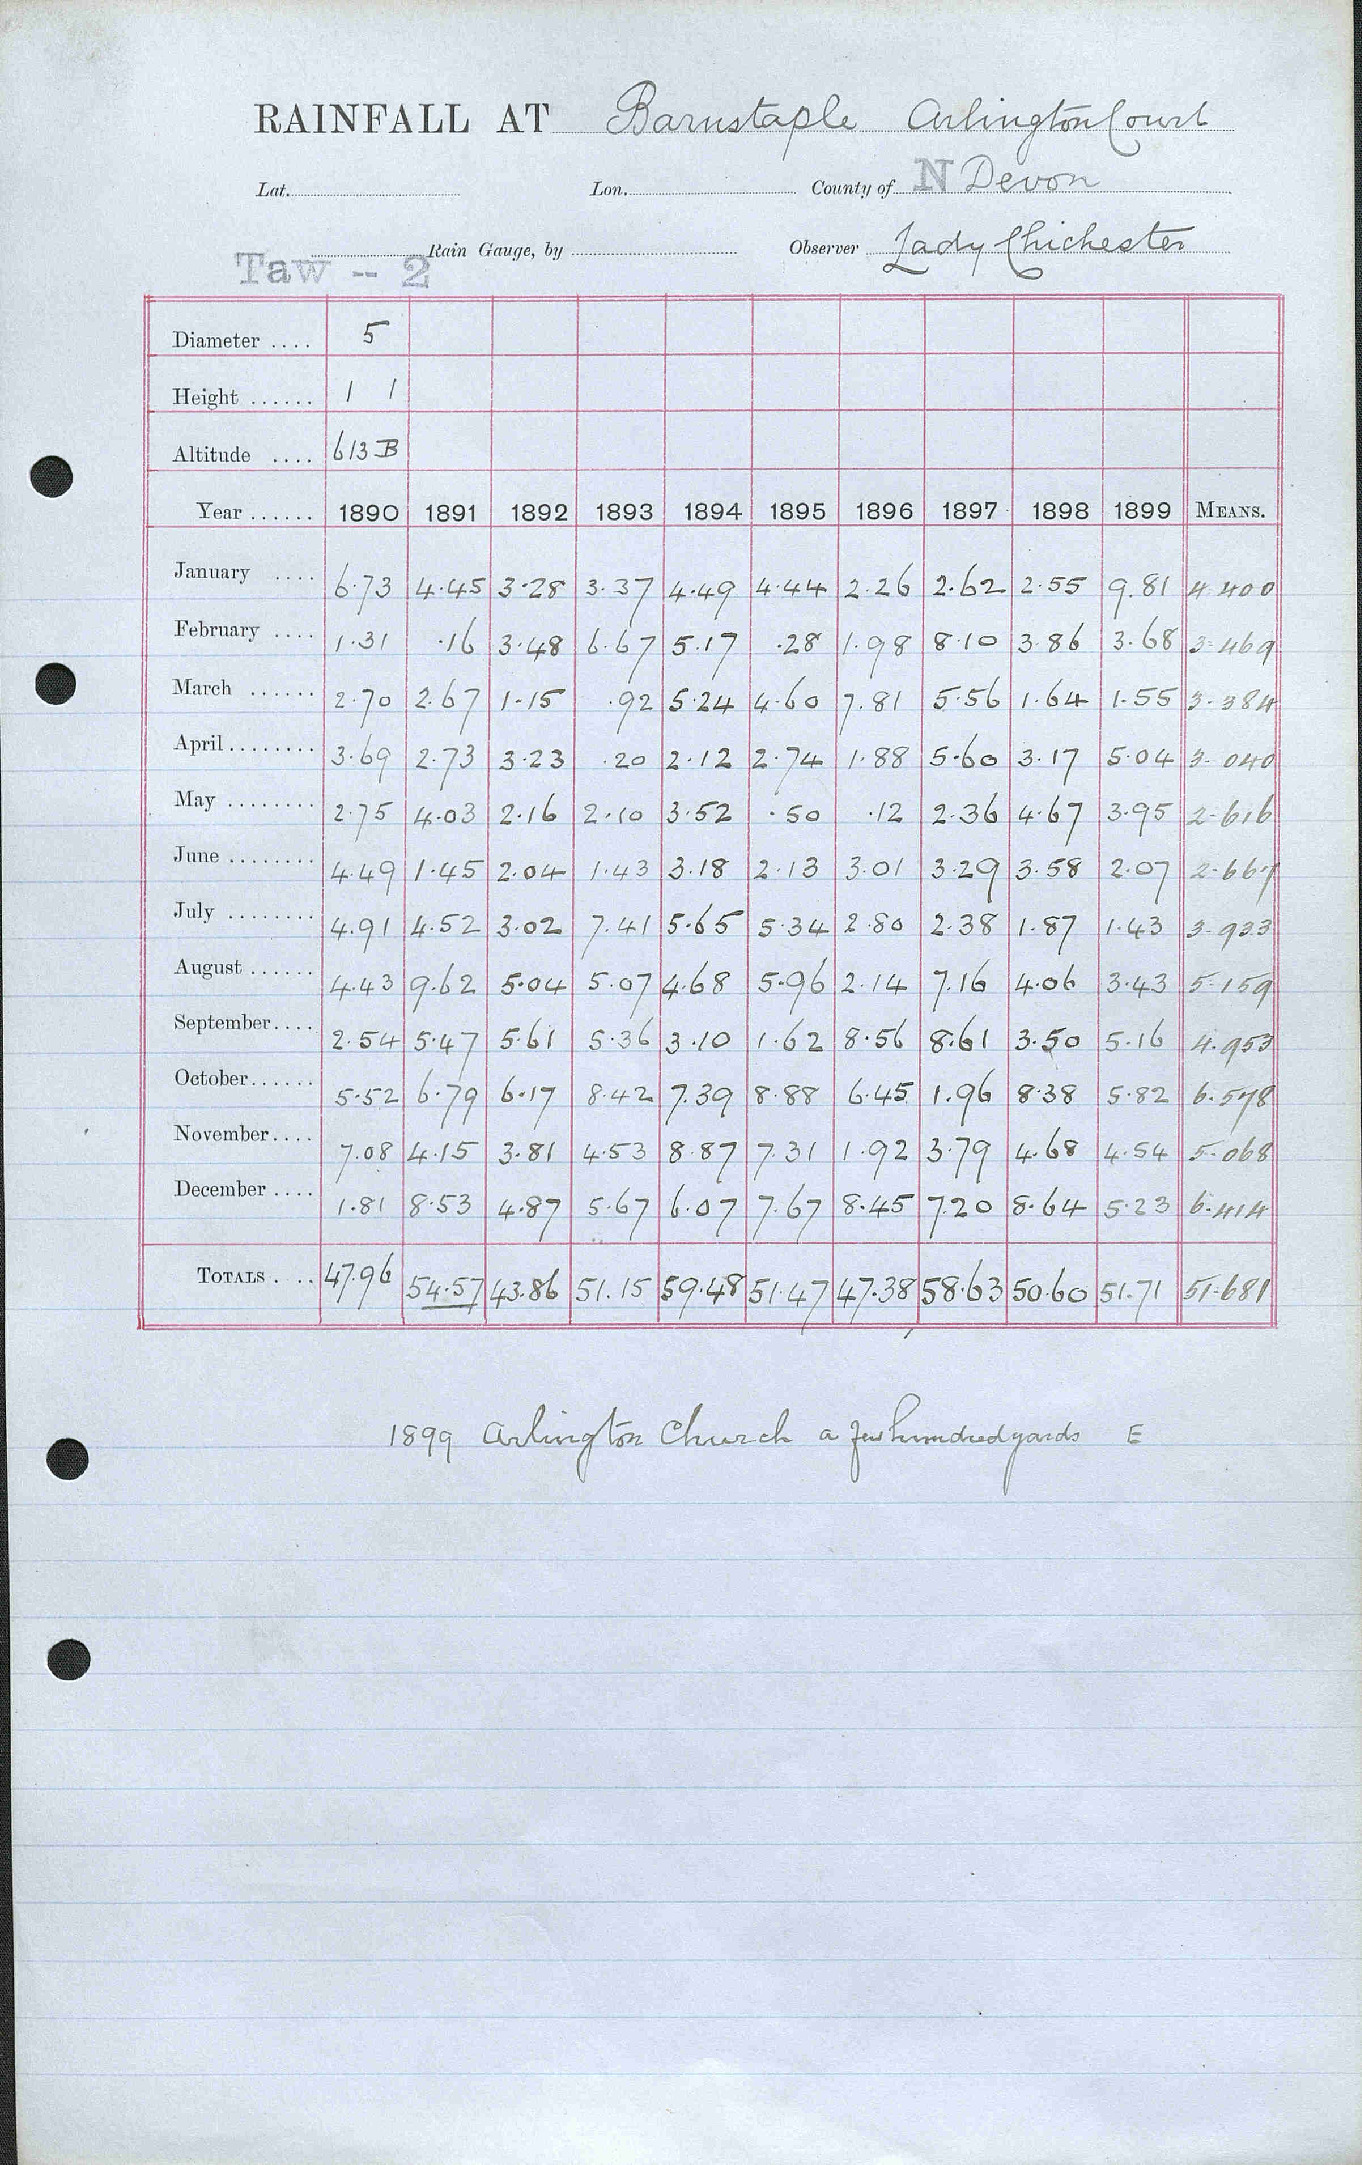 RAINFALL AT Barnstaple Arlington Court
Lat. Lon. County of N Devon
Rain Gauge, by Observer Lady Chichester
Taw -- 2
Diameter .... 5
Height ...... 1 1
Altitude .... 613 B
Year ...... 1890 1891 1892 1893 1894 1895 1896 1897 1898 1899 MEANS.
January .... 6.73 4.45 3.28 3.37 4.49 4.44 2.26 2.62 2.55 9.81 4.400
February .... 1.31 .16 3.48 6.67 5.17 .28 1.98 8.10 3.86 3.68 3.469
March ...... 2.70 2.67 1.15 .92 5.24 4.60 7.81 5.56 1.64 1.55 3.384
April ........ 3.69 2.73 3.23 .20 2.12 2.74 1.88 5.60 3.17 5.04 3.040
May ........ 2.75 4.03 2.16 2.10 3.52 .50 .12 2.36 4.67 3.95 2.616
June ........ 4.49 1.45 2.04 1.43 3.18 2.13 3.01 3.29 3.58 2.07 2.667
July ........ 4.91 4.52 3.02 7.41 5.65 5.34 2.80 2.38 1.87 1.43 3.933
August ...... 4.43 9.62 5.04 5.07 4.68 5.96 2.14 7.16 4.06 3.43 5.159
September .... 2.54 5.47 5.61 5.36 3.10 1.62 8.56 8.61 3.50 5.16 4.953
October ...... 5.52 6.79 6.17 8.42 7.39 8.88 6.45 1.96 8.38 5.82 6.578
November .... 7.08 4.15 3.81 4.53 8.87 7.31 1.92 3.79 4.68 4.54 5.068
December .... 1.81 8.53 4.87 5.67 6.07 7.67 8.45 7.20 8.64 5.23 6.414
TOTALS .... 47.96 54.57 43.86 51.15 59.48 51.47 47.38 58.63 50.60 51.71 51.681
1899 Arlington Church a few hundred yards E